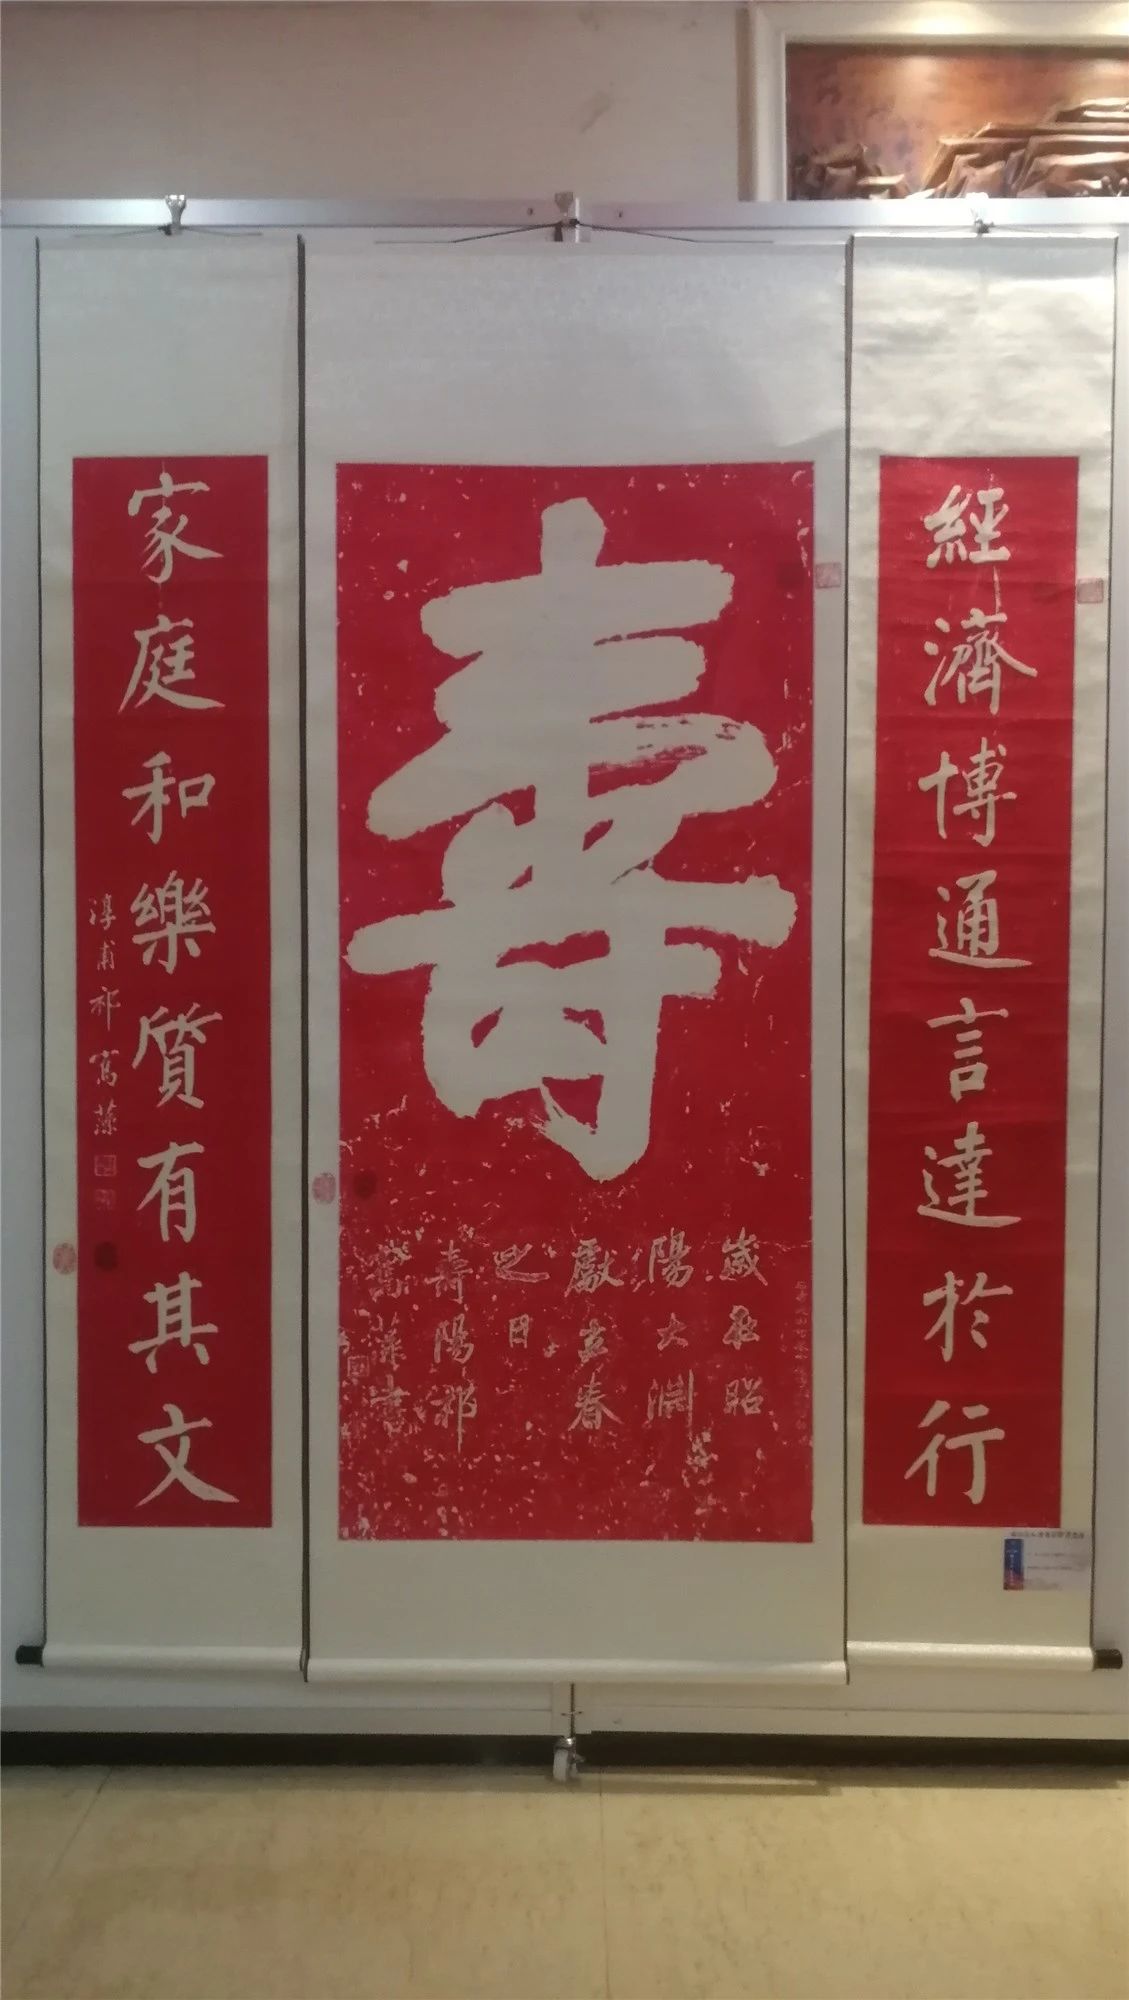 經濟博通言達於行
壽
歲在昭
陽大淵
獻立春
之日
壽陽祁
寯藻書
家庭和樂質有其文
淳甫祁寯藻